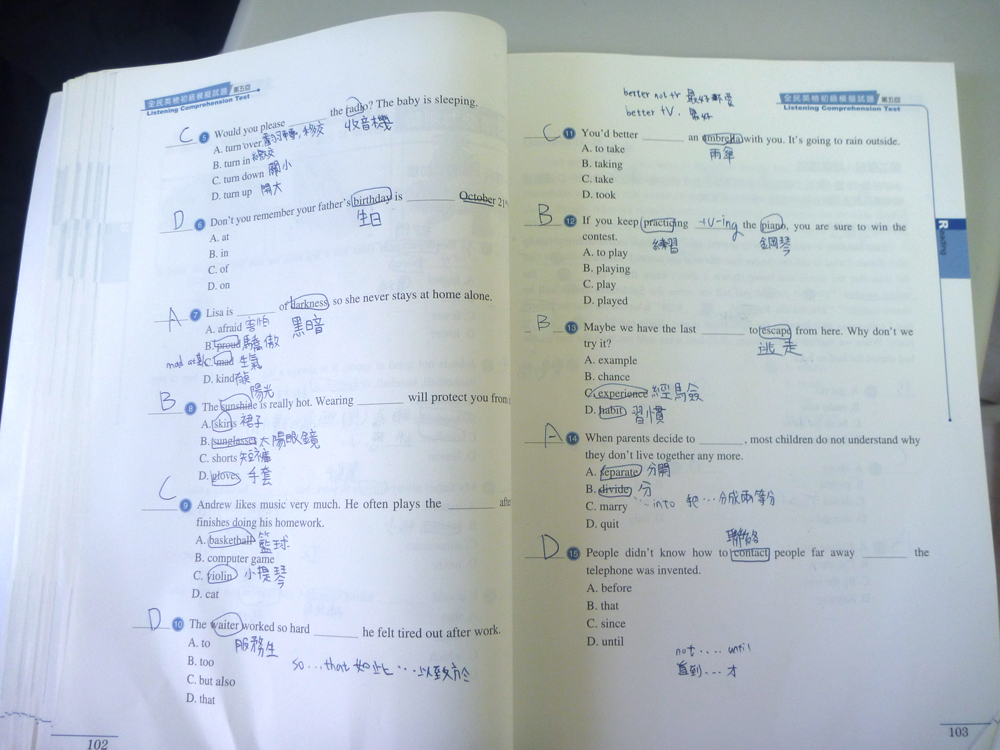 全民英檢初級模擬試題 第五回
Listening Comprehension Test
C 5 Would you please ______ the radio? The baby is sleeping.
收音機
A. turn over
B. turn in 繳交
C. turn down 關小
D. turn up 開大
D 6 Don't you remember your father's birthday is ______ October 21
生日
A. at
B. in
C. of
D. on
A 7 Lisa is ______ of darkness, so she never stays at home alone.
A. afraid 害怕 黑暗
B. proud 驕傲
mad at C. mad 生氣
D. kind
陽光
B 8 The sunshine is really hot. Wearing ______ will protect you from
A. skirts 裙子
B. sunglasses 太陽眼鏡
C. shorts 短褲
D. gloves 手套
C 9 Andrew likes music very much. He often plays the ______ after
finishes doing his homework.
A. basketball 籃球
B. computer game
C. violin 小提琴
D. cat
D 10 The waiter worked so hard ______ he felt tired out after work.
A. to 服務生
B. too
so...that 如此...以致於
C. but also
D. that
102
better not +V
better +V. 最好
全民英檢初級模擬試題 第五回
Listening Comprehension Test
C 11 You'd better ______ an umbrella with you. It's going to rain outside.
A. to take 雨傘
B. taking
C. take
D. took
B 12 If you keep practicing +V-ing the piano, you are sure to win the
contest. 練習 鋼琴
A. to play
B. playing
C. play
D. played
B 13 Maybe we have the last ______ to escape from here. Why don't we
try it? 逃走
A. example
B. chance
C. experience 經驗
D. habit 習慣
A 14 When parents decide to ______, most children do not understand why
they don't live together any more.
A. separate 分開
B. divide 分
...into 把...分成兩等分
C. marry
D. quit
聯絡
D 15 People didn't know how to contact people far away ______ the
telephone was invented.
A. before
B. that
C. since
D. until
not .... until
直到...才
Reading
103